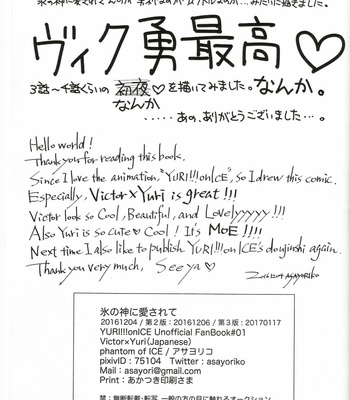 ヴィク勇最高♡
3話〜4話くらいの初夜♡を描いてみました。なんか。
なんか
.....あの、ありがとうございました…。
Hello world!
Thank you for reading this book.
Since I love the animation, "YURI!!!onICE", so I drew this comic.
Especially, Victor×Yuri is great!!!
Victor look so Cool, Beautiful, and Lovelyyyyy!!!
Also Yuri is so cute♡ Cool! It's MOE!!!!
Next time I also like to publish YURI!!!onICE's doujinshi again.
Thank you very much, See ya♡
20161204 ASAYORIKO
氷の神に愛されて
20161204 / 第2版：20161206 / 第3版：20170117
YURI!!!onICE Unofficial FanBook#01
Victor×Yuri(Japanese)
phantom of ICE / アサヨリコ
pixivID : 75104 Twitter : asayoriko
Mail : asayori@gmail.com
Print : あかつき印刷さま
禁：無断転載・転写 一般の方の目に触れるオークション